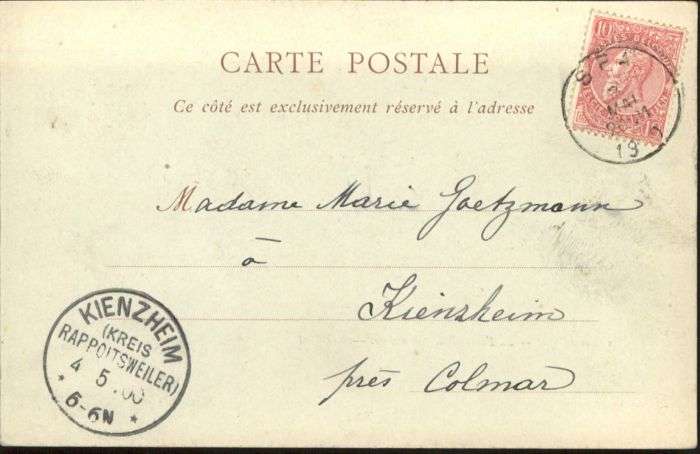 CARTE POSTALE
Ce côté est exclusivement réservé à l'adresse
10
SPA
MAI
19
Madame Marie Goetzmann
à
Kienzheim
près Colmar
KIENZHEIM
(KREIS
RAPPOITSWEILER)
4 5.00
* 5-6N *